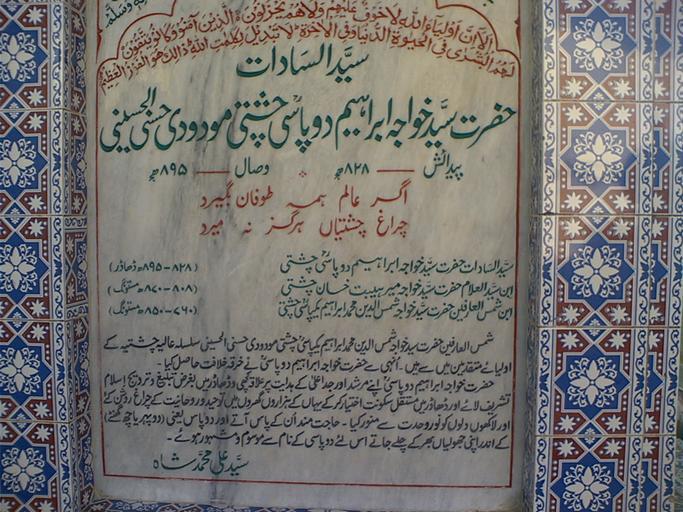 الا ان اولیاء اللہ لا خوف علیھم ولا ھم یحزنون ۝ الذین آمنو وکانو یتقون
لھم البشری فی الحیوۃ الدنیا و فی الآخرۃ لا تبدیل لکلمت اللہ ذالک ھو الفوز العظیم
سیّد السادات
حضرت سیّد خواجہ ابراہیم دوپاسیؒ چشتی مودودی حسنی الحسینی
پیدائش —— ۸۲۸ھ وصال —— ۸۹۵ھ
اگر عالم ہمہ طوفان گیرد
چراغ چشتیاں ہرگز نہ میرد
سیّد السادات حضرت سیّد خواجہ ابراہیم دوپاسیؒ چشتی (۸۲۸-۸۹۵ھ ڈھاڈر)
ابن سیّد العلام حضرت سیّد خواجہ میر ہیبت خان چشتی (۸۰۸-۸۷۰ھ مستونگ)
ابن شمس العارفین حضرت سیّد خواجہ شمس الدین محمد ابراہیم یکپاسیؒ چشتی (۷۶۰-۸۵۰ھ مستونگ)
شمس العارفین حضرت سید خواجہ شمس الدین محمد ابراہیم یکپاسیؒ چشتی مودودی حسنی الحسینی سلسلہ عالیہ چشتیہ کے
اولیائے متقدمین میں سے ہیں۔ انہی سے حضرت خواجہ ابراہیم دوپاسیؒ نے خرقہ خلافت حاصل کیا۔
حضرت خواجہ ابراہیم دوپاسیؒ اپنے مرشد اور جد اعلیٰ کے ہدایت پر علاقہ کچھی و ڈھاڈر میں بغرض تبلیغ و ترویج اسلام
تشریف لائے اور ڈھاڈر میں مستقل سکونت اختیار کر کے یہاں کے ہزاروں گھروں میں توحید و روحانیت کے چراغ روشن کئے
اور لاکھوں دلوں کو نور وحدت سے منور کیا۔ حاجت مند ان کے پاس آتے اور دوپاس یعنی (دو پہر یا چھ گھنٹے)
کے اندر اپنی جھولیاں بھر کے چلے جاتے اس لئے دوپاسی کے نام سے موسوم و مشہور ہوئے۔
سیّد علی محمد شاہ